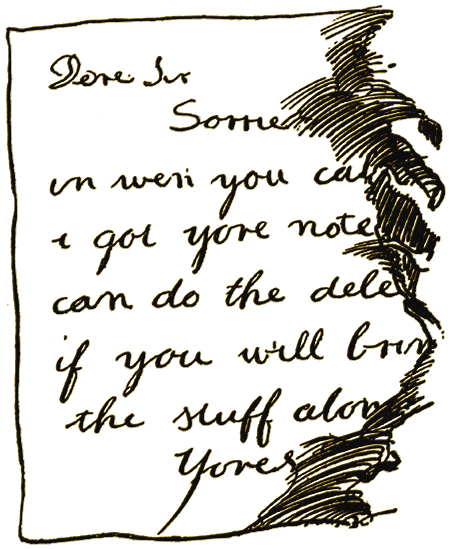 Dere Sir
Sorrie
in wen you cal
i got yore note
can do the dele
if you will brin
the stuff alon
Yores